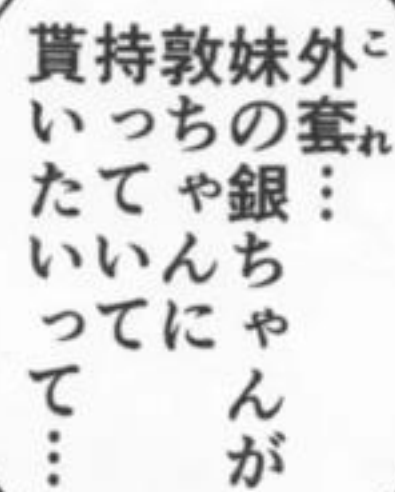 外套…
妹の銀ちゃんが
敦ちゃんに
持っていて
貰いたいって…
これ